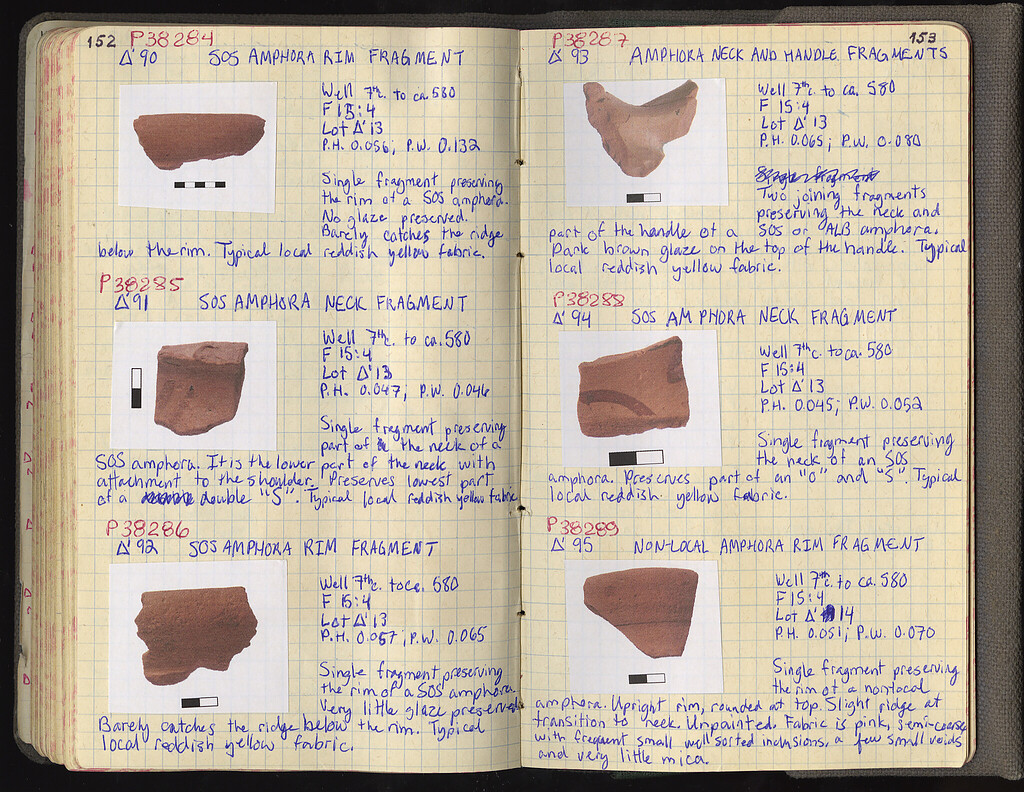 152 P38284
Δ'90 SOS AMPHORA RIM FRAGMENT
Well 7th c. to ca. 580
F 15:4
Lot Δ'13
P.H. 0.056; P.W. 0.132
Single fragment preserving
the rim of a SOS amphora.
No glaze preserved.
Barely catches the ridge
below the rim. Typical local reddish yellow fabric.
P38285
Δ'91 SOS AMPHORA NECK FRAGMENT
Well 7th c. to ca. 580
F 15:4
Lot Δ'13
P.H. 0.047; P.W. 0.046
Single fragment preserving
part of the neck of a
SOS amphora. It is the lower part of the neck with
attachment to the shoulder. Preserves lowest part
of a double "S". Typical local reddish yellow fabric
P38286
Δ'92 SOS AMPHORA RIM FRAGMENT
Well 7th c. to ca. 580
F 15:4
Lot Δ'13
P.H. 0.057; P.W. 0.065
Single fragment preserving
the rim of a SOS amphora.
Very little glaze preserved
Barely catches the ridge below the rim. Typical
local reddish yellow fabric.
P38287 153
Δ'93 AMPHORA NECK AND HANDLE FRAGMENTS
Well 7th c. to ca. 580
F 15:4
Lot Δ'13
P.H. 0.065; P.W. 0.080
Single fragment
Two joining fragments
preserving the neck and
part of the handle of a SOS or ALB amphora.
Dark brown glaze on the top of the handle. Typical
local reddish yellow fabric.
P38288
Δ'94 SOS AMPHORA NECK FRAGMENT
Well 7th c. to ca. 580
F 15:4
Lot Δ'13
P.H. 0.045; P.W. 0.052
Single fragment preserving
the neck of an SOS
amphora. Preserves part of an "O" and "S". Typical
local reddish yellow fabric.
P38289
Δ'95 NON-LOCAL AMPHORA RIM FRAGMENT
Well 7th c. to ca. 580
F 15:4
Lot Δ'14
P.H. 0.051; P.W. 0.070
Single fragment preserving
the rim of a nonlocal
amphora. Upright rim, rounded at top. Slight ridge at
transition to neck. Unpainted. Fabric is pink, semi-coarse
with frequent small well sorted inclusions, a few small voids
and very little mica.